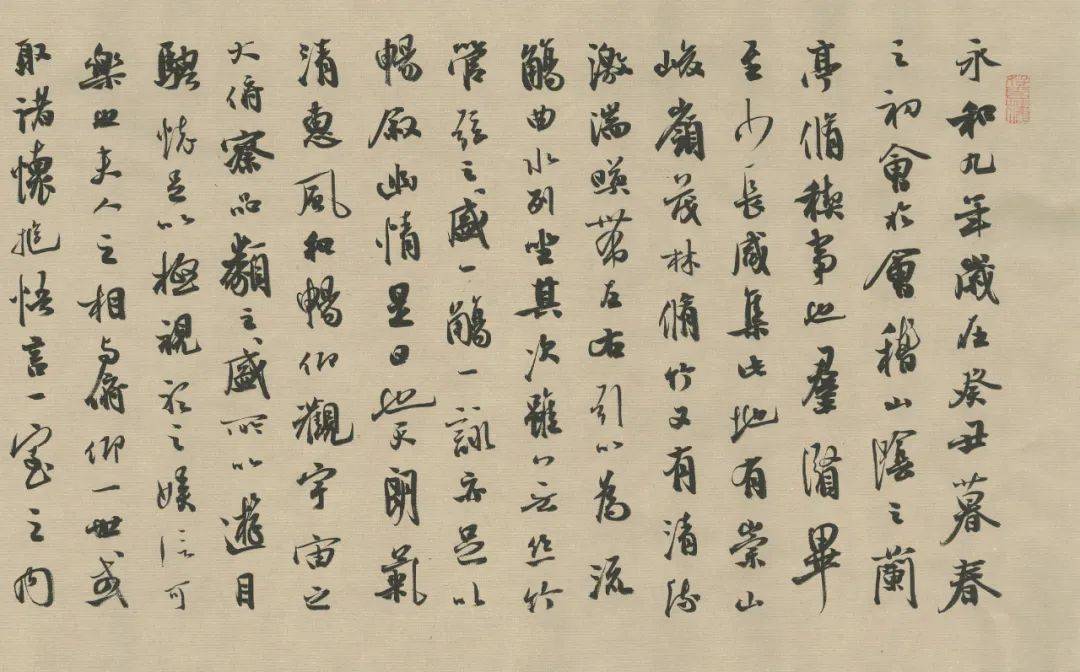 永和九年歲在癸丑暮春
之初會於會稽山陰之蘭
亭脩稧事也羣賢畢
至少長咸集此地有崇山
峻嶺茂林脩竹又有清流
激湍暎帶左右引以為流
觴曲水列坐其次雖無絲竹
管弦之盛一觴一詠亦足以
暢敘幽情是日也天朗氣
清惠風和暢仰觀宇宙之
大俯察品類之盛所以遊目
騁懷足以極視聽之娛信可
樂也夫人之相與俯仰一世或
取諸懷抱悟言一室之內